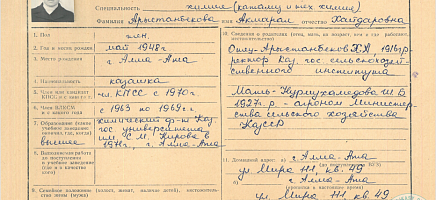 Специальность химия (катализ и кин. химия)
Фамилия Арыстанбекова Акмарал отчество Хайдаровна
1. Пол жен.
2. Год и месяц рождения май 1948г.
3. Место рождения г. Алма-Ата
4. Национальность казашка
КПСС чл. КПСС с 1970г.
6. Член ВЛКСМ и с какого года с 1963 по 1969гг.
7. Образование высшее
химический ф-т Каз. гос. университета им. С.М. Кирова в 1971г., г. Алма-Ата
Отец - Арыстанбеков Х.А. 1916г.р. ректор Каз. гос. сельскохозяйственного института
Мать - Нурмухамедова Ш.В. 1927г.р. - агроном Министерства сельского хозяйства КазССР
11. Домашний адрес: а) г. Алма-Ата
ул. Мира 111, кв. 49
б) г. Алма-Ата
ул. Мира 111, кв. 49